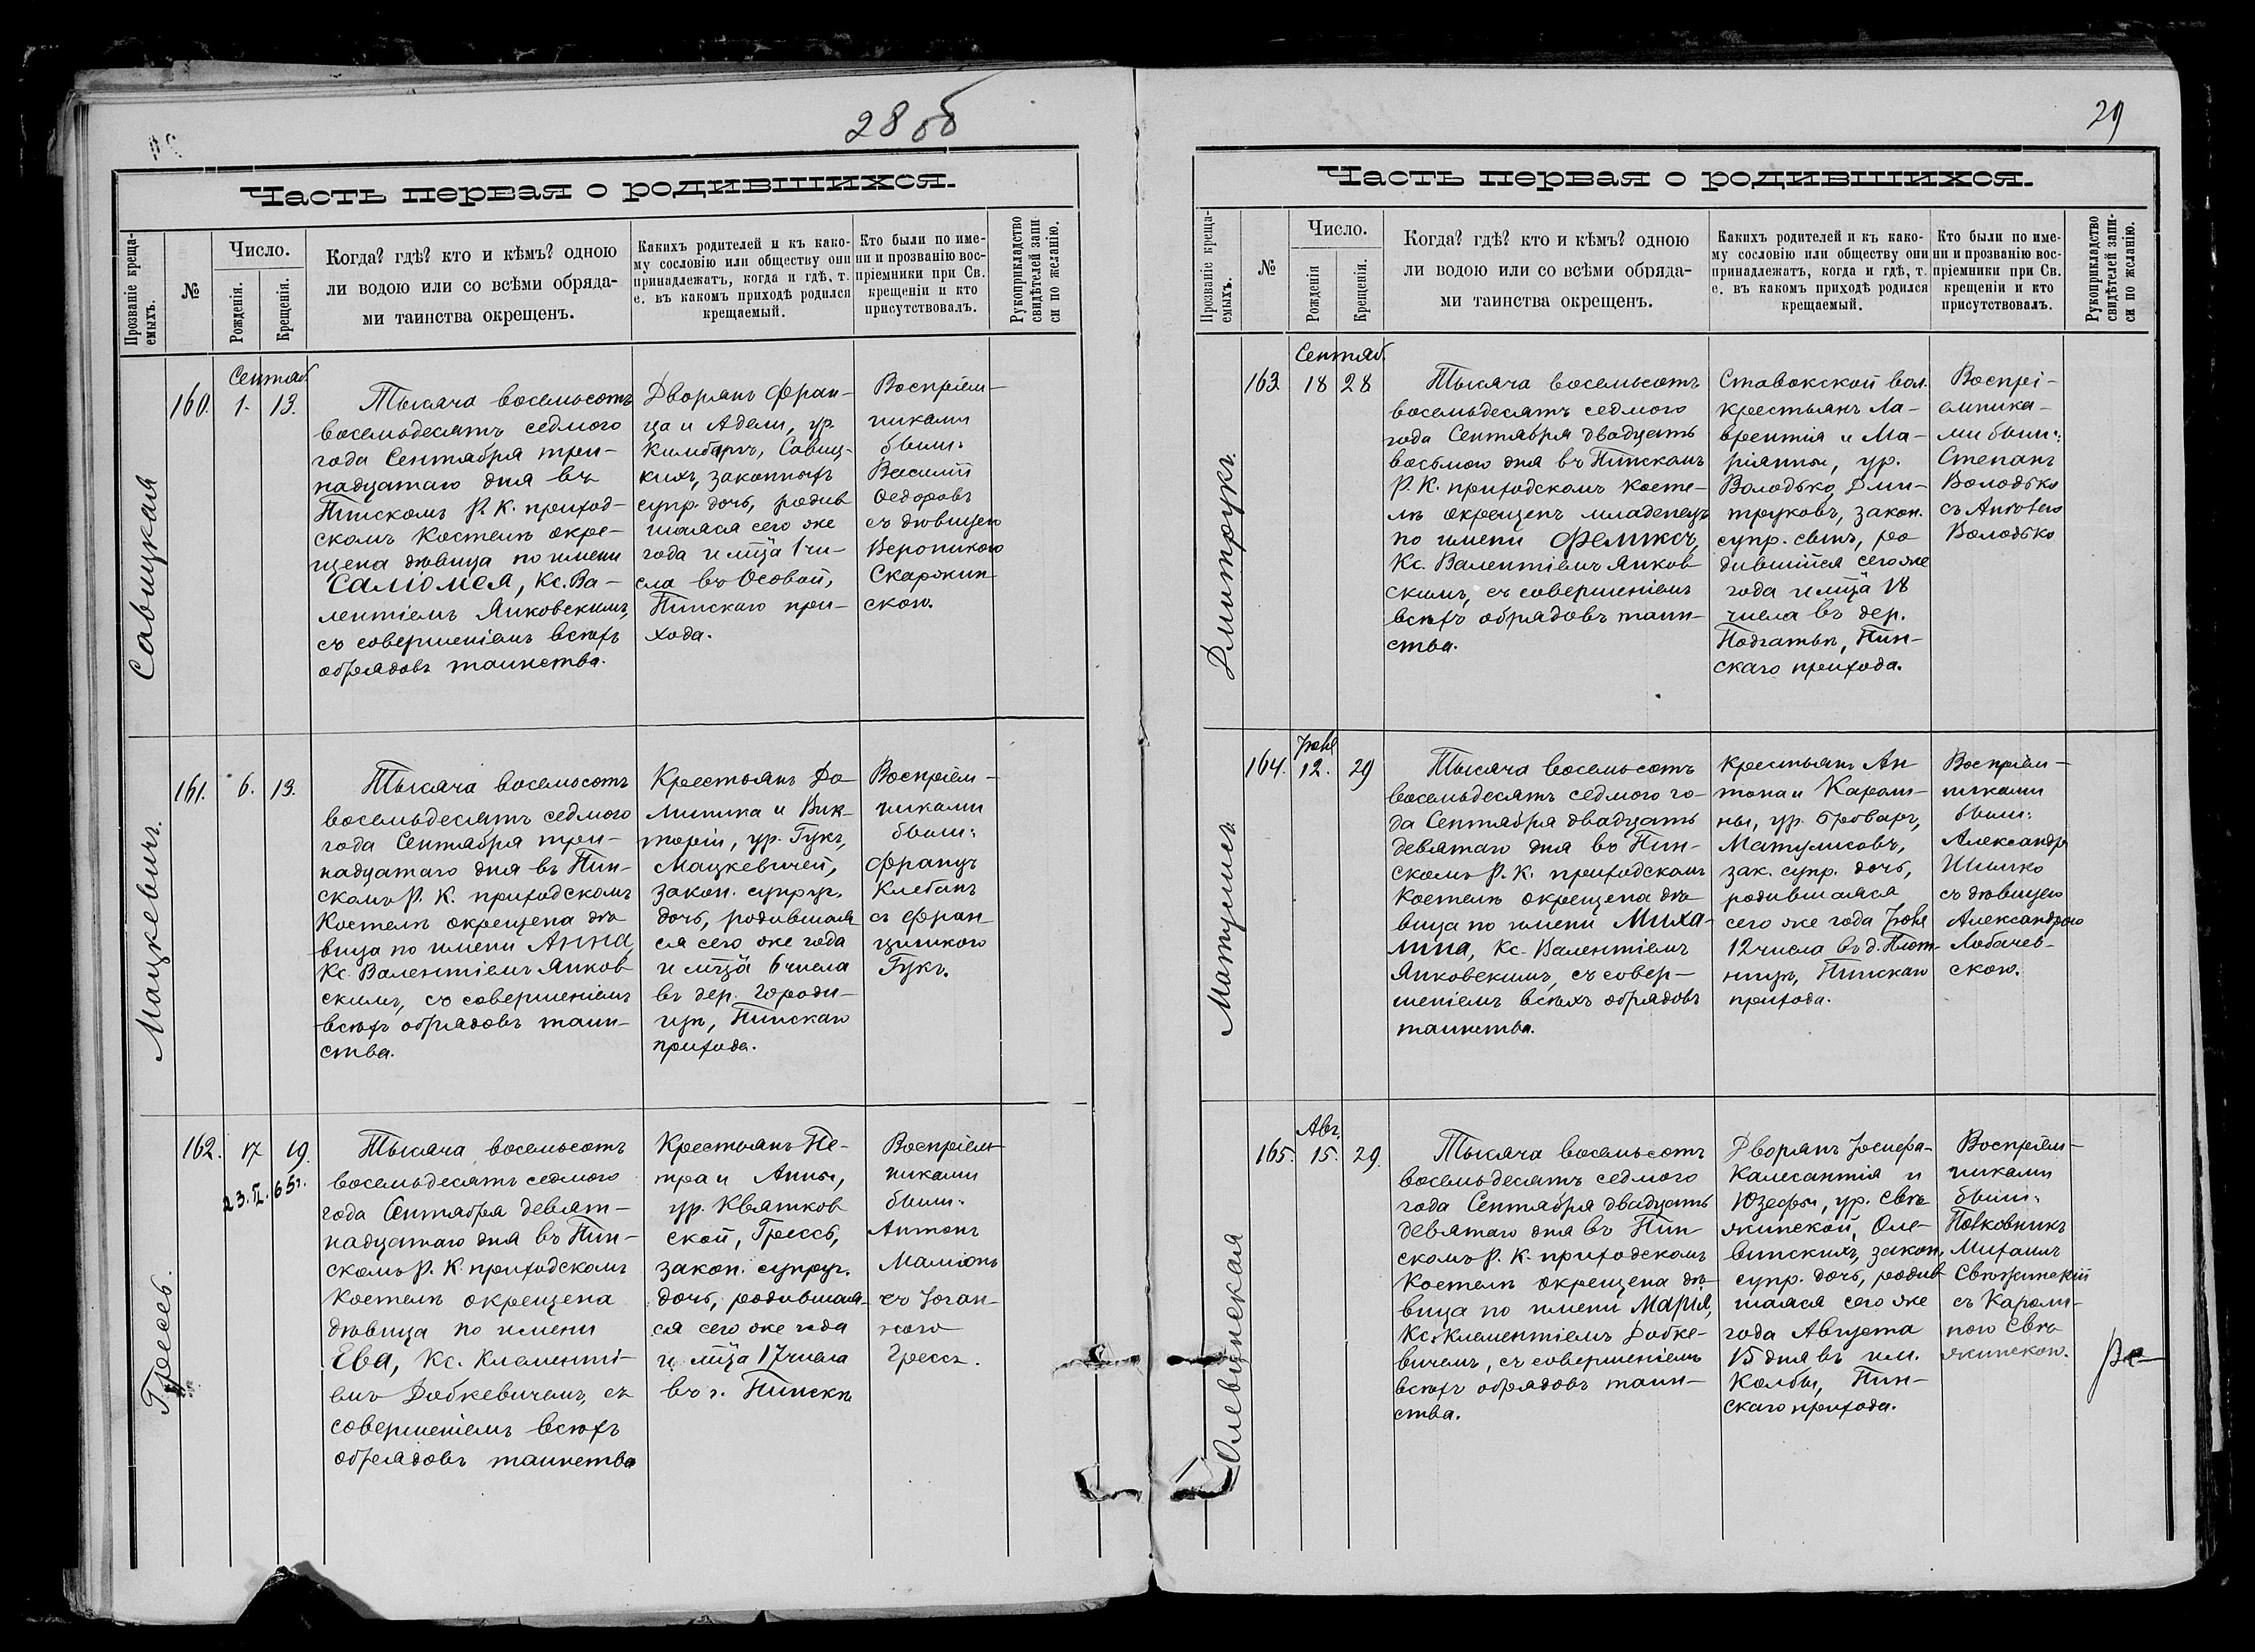 28 об
Часть первая о родившихся.
Прозваніе креща-
емыхъ.
№
Число.
Рожденія.
Крещенія.
Когда? гдѣ? кто и кѣмъ? одною
ли водою или со всѣми обряда-
ми таинства окрещенъ.
Какихъ родителей и къ како-
му сословію или обществу они
принадлежатъ, когда и гдѣ, т.
е. въ какомъ приходѣ родился
крещаемый.
Кто были по име-
ни и прозванію вос-
пріемники при Св.
крещеніи и кто
присутствовалъ.
Рукоприкладство
свидѣтелей запи-
си по желанію.
Савицкая
160.
Сентяб.
1.
13.
Тысяча восемьсотъ
восемьдесятъ седмого
года Сентября три-
надцатаго дня въ
Пинскомъ Р. К. приход-
скомъ Костелѣ окре-
щена дѣвица по имени
Саліомея, Кс. Ва-
лентіемъ Янковскимъ,
съ совершеніемъ всѣхъ
обрядовъ таинства.
Дворянъ Фран-
ца и Адели, ур.
Кимбаръ, Савиц-
кихъ, законныхъ
супр. дочь, родив
шаяся сего же
года и мца 1 чи-
сла въ Осовой,
Пинскаго при-
хода.
Воспріем-
никами
были:
Василій
Ѳедоровъ
съ дѣвицею
Вероникою
Скаржин
скою.
Мацкевичъ.
161.
6.
13.
Тысяча восемьсотъ
восемьдесятъ седмого
года Сентября три-
надцатаго дня въ Пин-
скомъ Р. К. приходскомъ
Костелѣ окрещена дѣ
вица по имени Анна,
Кс. Валентіемъ Янков
скимъ, съ совершеніемъ
всѣхъ обрядовъ таин-
ства.
Крестьянъ До-
миника и Вик-
торіи, ур. Гукъ,
Мацкевичей,
закон. супруг.
дочь, родившая
ся сего же года
и мца 6 числа
въ дер. Городи-
щѣ, Пинскаго
прихода.
Воспріем-
никами
были:
Францъ
Клебанъ
съ Фран
цишкою
Гукъ.
Грессь.
162.
17
19.
23.II.65г.
Тысяча восемьсотъ
восемьдесятъ седмого
года Сентября девят-
надцатаго дня въ Пин-
скомъ Р. К. приходскомъ
Костелѣ окрещена
дѣвица по имени
Ева, Кс. Клементі-
емъ Добкевичемъ, съ
совершеніемъ всѣхъ
обрядовъ таинства
Крестьянъ Пе-
тра и Анны,
ур. Квятков
ской, Грессь,
закон. супруг.
дочь, родившая-
ся сего же года
и мца 17 числа
въ г. Пинскѣ
Воспріем-
никами
были:
Антонъ
съ Іоган-
ною
Грессъ.
29
Часть первая о родившихся.
Прозваніе креща-
емыхъ.
№
Число.
Рожденія
Крещенія.
Когда? гдѣ? кто и кѣмъ? одною
ли водою или со всѣми обряда-
ми таинства окрещенъ.
Какихъ родителей и къ како-
му сословію или обществу они
принадлежатъ, когда и гдѣ, т.
е. въ какомъ приходѣ родился
крещаемый.
Кто были по име-
ни и прозванію вос-
пріемники при Св.
крещеніи и кто
присутствовалъ.
Рукоприкладство
свидѣтелей запи-
си по желанію.
Дмитрукъ.
163
Сентяб.
18
28
Тысяча восемьсотъ
восемьдесятъ седмого
года Сентября двадцать
восьмого дня въ Пинскомъ
Р. К. приходскомъ Косте-
лѣ окрещенъ младенецъ
по имени Феликсъ,
Кс. Валентіемъ Янков
скимъ, съ совершеніемъ
всѣхъ обрядовъ таин-
ства.
Ставокской вол.
крестьянъ Ла-
врентія и Ма-
ріанны, ур.
Володько, Дми-
труковъ, закон.
супр. сынъ, ро
дившійся сего же
года и мца 18
числа въ дер.
Подгатьи, Пин-
скаго прихода.
Воспрі-
емника-
ми были:
Степанъ
Володько
съ Анною
Володько
Матулисъ
164.
Іюня
12.
29
Тысяча восемьсотъ
восемьдесятъ седмого го-
да Сентября двадцать
девятаго дня въ Пин-
скомъ Р. К. приходскомъ
Костелѣ окрещена дѣ
вица по имени Миха-
лина, Кс. Валентіемъ
Янковскимъ, съ совер-
шеніемъ всѣхъ обрядовъ
таинства.
Крестьянъ Ан
тона и Кароли-
ны, ур. Бровaръ,
Матулисовъ,
зак. супр. дочь,
родившаяся
сего же года Іюня
12 числа въ д. Плот-
ницѣ, Пинскаго
прихода.
Воспріем-
никами
были:
Александръ
Шишко
съ дѣвицею
Александрою
Лобачев-
скою.
Олевинская
165.
Авг.
15.
29.
Тысяча восемьсотъ
восемьдесятъ седмого
года Сентября двадцать
девятаго дня въ Пин
скомъ Р. К. приходскомъ
Костелѣ окрещена дѣ-
вица по имени Марія,
Кс. Клементіемъ Добке-
вичемъ, съ совершеніемъ
всѣхъ обрядовъ таин-
ства.
Дворянъ Іосифа-
Калисантія и
Юзефы, ур. Свѣ
жинской, Оле-
винскихъ, закон.
супр. дочь, родив
шаяся сего же
года Августа
15 дня въ им.
Колбы, Пин-
скаго прихода.
Воспріем-
никами
были:
Полковникъ
Михаилъ
Свѣжинскій
съ Кароли-
ною Свѣ-
жинскою.